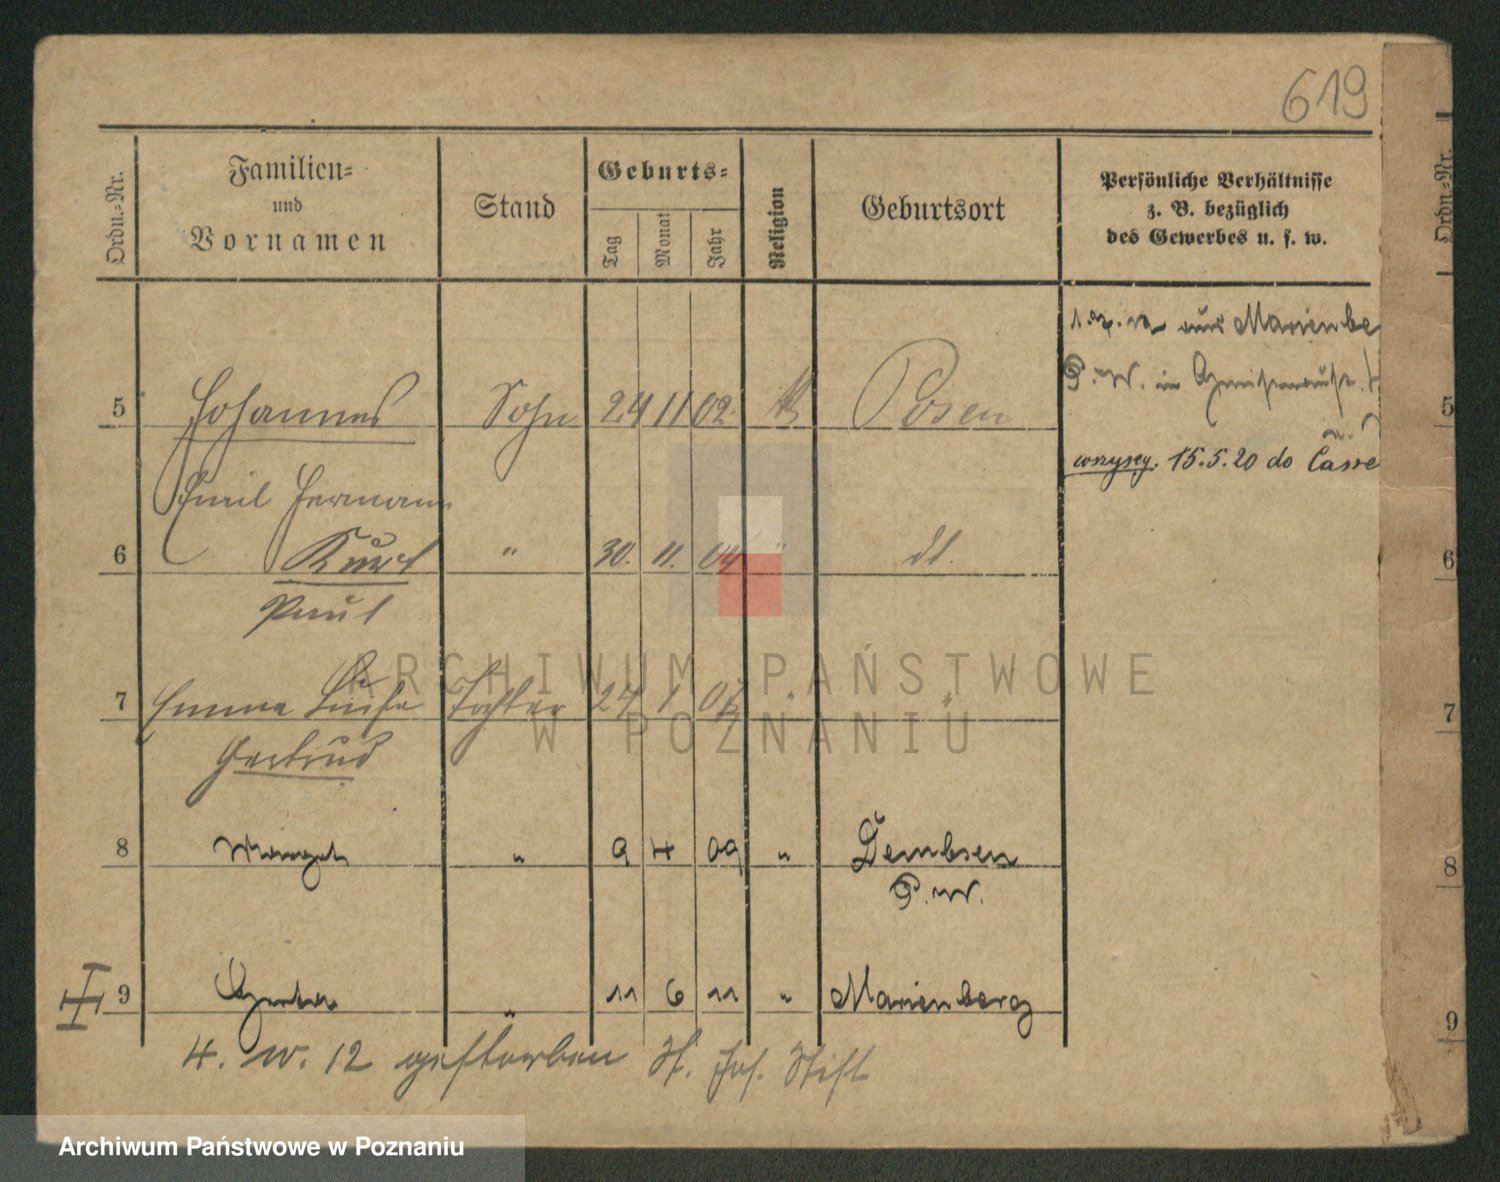 619
Ordn.-Nr.
Familien-
und
Vornamen
Stand
Geburts-
Tag
Monat
Jahr
Religion
Geburtsort
Persönliche Verhältnisse
z. B. bezüglich
des Gewerbes u. s. w.
Ordn.-Nr.
aus Marienbe
P. W. in
wszyscy. 15.5.20 do Casse
5 Johannes Sohn 24 11 02. Posen 5
Emil Hermann
6 Kurt " 30. 11. 04 " dt. 6
Paul
7 Emma Luise Tochter 24 1 07 " " 7
Gertrud
8 " 9 4 09 " Dembsen 8
P. W.
9 " 11 6 11 " Marienberg 9
4. 12 gestorben St. Jos. Stift
ARCHIWUM PAŃSTWOWE
W POZNANIU
Archiwum Państwowe w Poznaniu